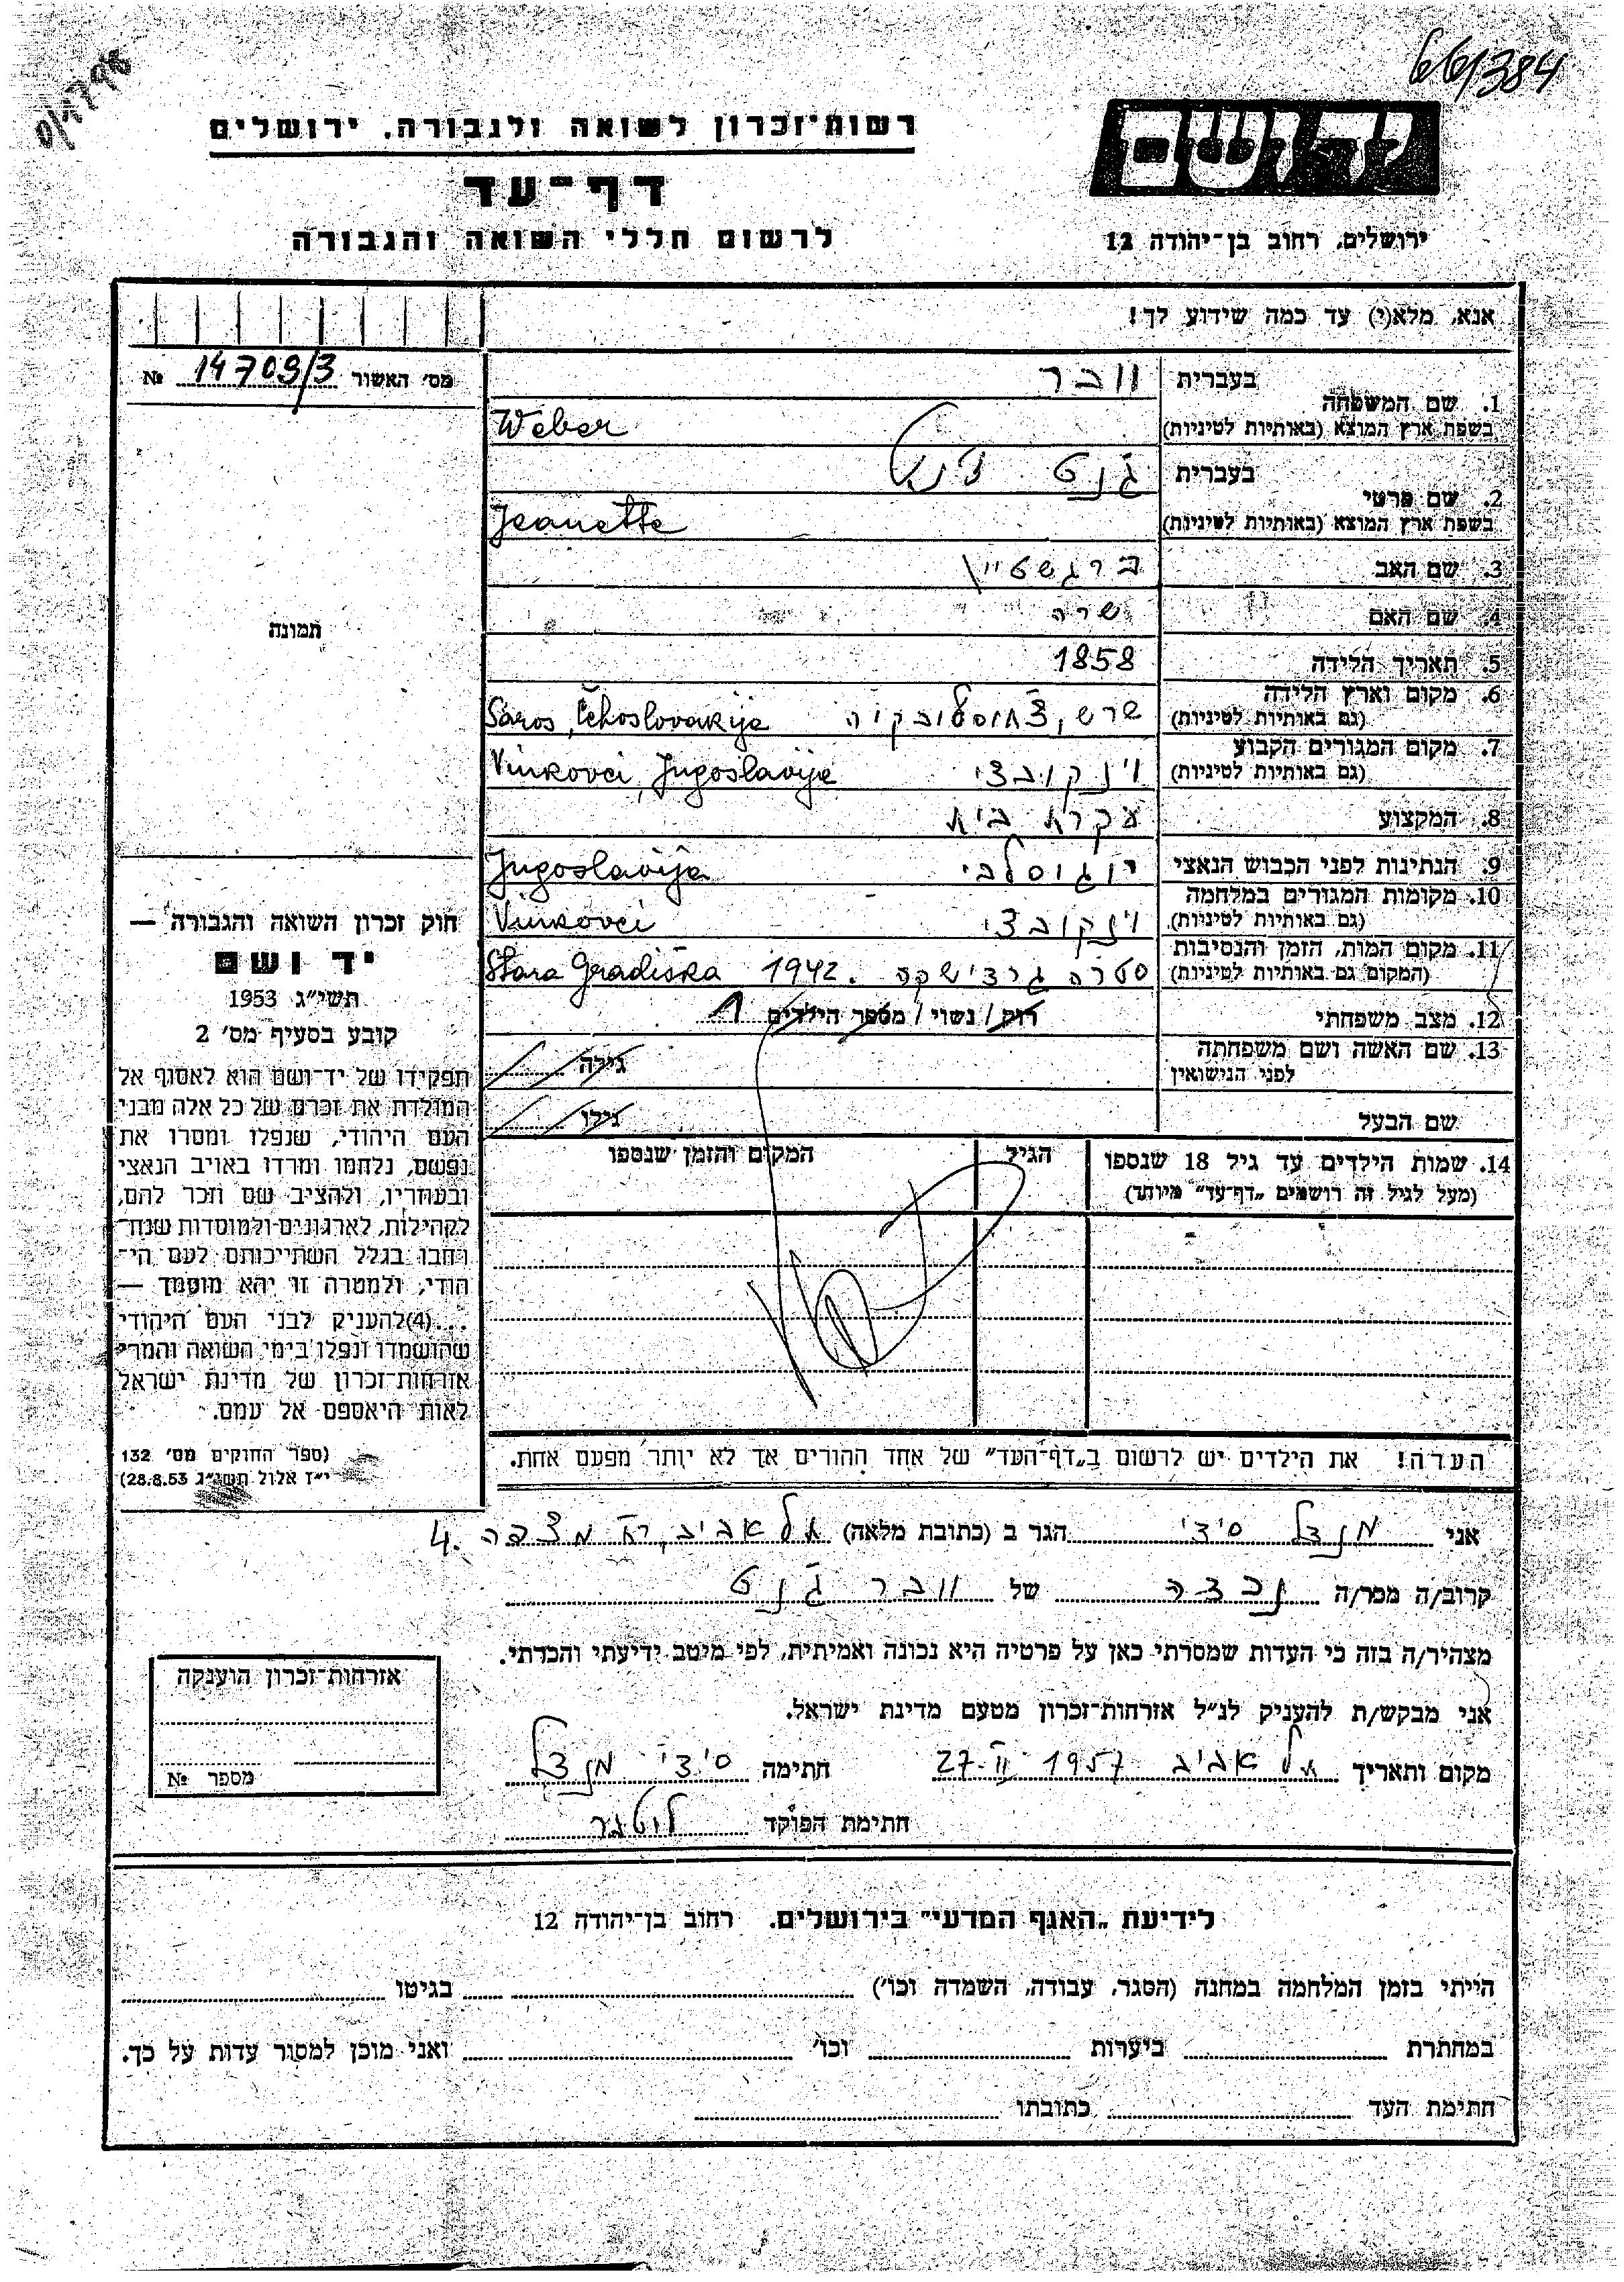 66/384
רשות־זכרון לשואה ולגבורה, ירושלים
יד ושם
דף־עד
לרשום חללי השואה והגבורה
ירושלים, רחוב בן־יהודה 12
אנא, מלא(י) עד כמה שידוע לך!
מס' האשור 14709/3 №
1. שם המשפחה בעברית וובר
בשפת ארץ המוצא (באותיות לטיניות) Weber
2. שם פרטי בעברית ג'נט
בשפת ארץ המוצא (באותיות לטיניות) Jeanette
3. שם האב ברגשטיין
4. שם האם שרה
תמונה
5. תאריך הלידה 1858
6. מקום וארץ הלידה
(גם באותיות לטיניות) שרש, צ'חוסלובקיה Saros, Čehoslovakija
7. מקום המגורים הקבוע
(גם באותיות לטיניות) וינקובצי Vinkovci, Jugoslavija
8. המקצוע עקרת בית
9. הנתינות לפני הכבוש הנאצי יוגוסלבי Jugoslavija
10. מקומות המגורים במלחמה
(גם באותיות לטיניות) וינקובצי Vinkovci
11. מקום המות, הזמן והנסיבות
(המקום גם באותיות לטיניות) סטרה גרדישקה 1942. Stara Gradiška
12. מצב משפחתי רוק / נשוי / מספר הילדים 1
13. שם האשה ושם משפחתה
לפני הנישואין גילה
שם הבעל גילו
14. שמות הילדים עד גיל 18 שנספו הגיל המקום והזמן שנספו
(מעל לגיל זה רושמים „דף־עד" מיוחד)
חוק זכרון השואה והגבורה —
יד ושם
תשי"ג 1953
קובע בסעיף מס' 2
תפקידו של יד־ושם הוא לאסוף אל
המולדת את זכרם של כל אלה מבני
העם היהודי, שנפלו ומסרו את
נפשם, נלחמו ומרדו באויב הנאצי
ובעוזריו, ולהציב שם וזכר להם,
לקהילות, לארגונים ולמוסדות שנח־
רבו בגלל השתייכותם לעם הי־
הודי, ולמטרה זו יהא מוסמך —
...(4) להעניק לבני העם היהודי
שהושמדו ונפלו בימי השואה והמרי
אזרחות־זכרון של מדינת ישראל
לאות היאספם אל עמם.
(ספר החוקים מס' 132
י"ז אלול תשי"ג 28.8.53)
הערה! את הילדים יש לרשום ב„דף־העד" של אחד ההורים אך לא יותר מפעם אחת.
אני מנדל סידי הגר ב (כתובת מלאה) תל אביב, רח' מצפה 4.
קרוב/ה מכר/ה נכדה של וובר ג'נט
מצהיר/ה בזה כי העדות שמסרתי כאן על פרטיה היא נכונה ואמיתית, לפי מיטב ידיעתי והכרתי.
אני מבקש/ת להעניק לנ"ל אזרחות־זכרון מטעם מדינת ישראל.
מקום ותאריך תל אביב 27.II 1957 חתימה סידי מנדל
חתימת הפוקד
אזרחות־זכרון הוענקה
מספר №
לידיעת „האגף המדעי" בירושלים, רחוב בן־יהודה 12
הייתי בזמן המלחמה במחנה (הסגר, עבודה, השמדה וכו') בגיטו
במחתרת ביערות וכו' ואני מוכן למסור עדות על כך.
חתימת העד כתובתו